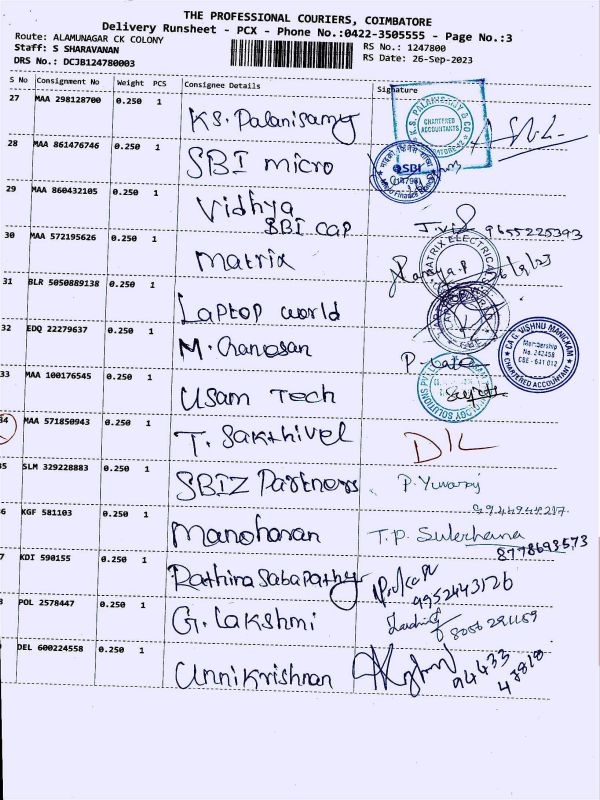 THE PROFESSIONAL COURIERS, COIMBATORE
Delivery Runsheet - PCX - Phone No.:0422-3505555 - Page No.:3
Route: ALAMUNAGAR CK COLONY
RS No.: 1247800
Staff: S SHARAVANAN
RS Date: 26-Sep-2023
DRS No.: DCJB124780003
S No Consignment No Weight PCS Consignee Details Signature
27 MAA 298128700 0.250 1 KS. Palanisamy
K.S. & CO CHARTERED ACCOUNTANTS
28 MAA 861476746 0.250 1 SBI micro
SBI
29 MAA 860432105 0.250 1 Vidhya
SBI cap
9655225393
30 MAA 572195626 0.250 1 Matrix
MATRIX ELECTRICAL
31 BLR 5050889138 0.250 1 Laptop world
32 EDQ 22279637 0.250 1 M. Chandrasan
CA G. VISHNU MANICKAM
Membership
No. 242458
CBE - 641 012
CHARTERED ACCOUNTANT
33 MAA 100176545 0.250 1 Usam Tech
SOLUTIONS PVT
34 MAA 571850943 0.250 1 T. Sakthivel D/L
35 SLM 329228883 0.250 1 SBIZ Partners P. Yuvaraj
6 KGF 581103 0.250 1 Manoharan T.P. Sulerhana
8778693573
7 KDI 590155 0.250 1 Rathina Sabapathy
9952443126
POL 2578447 0.250 1 G. Lakshmi
8056291159
DEL 600224558 0.250 1 Unnikrishnan
94433